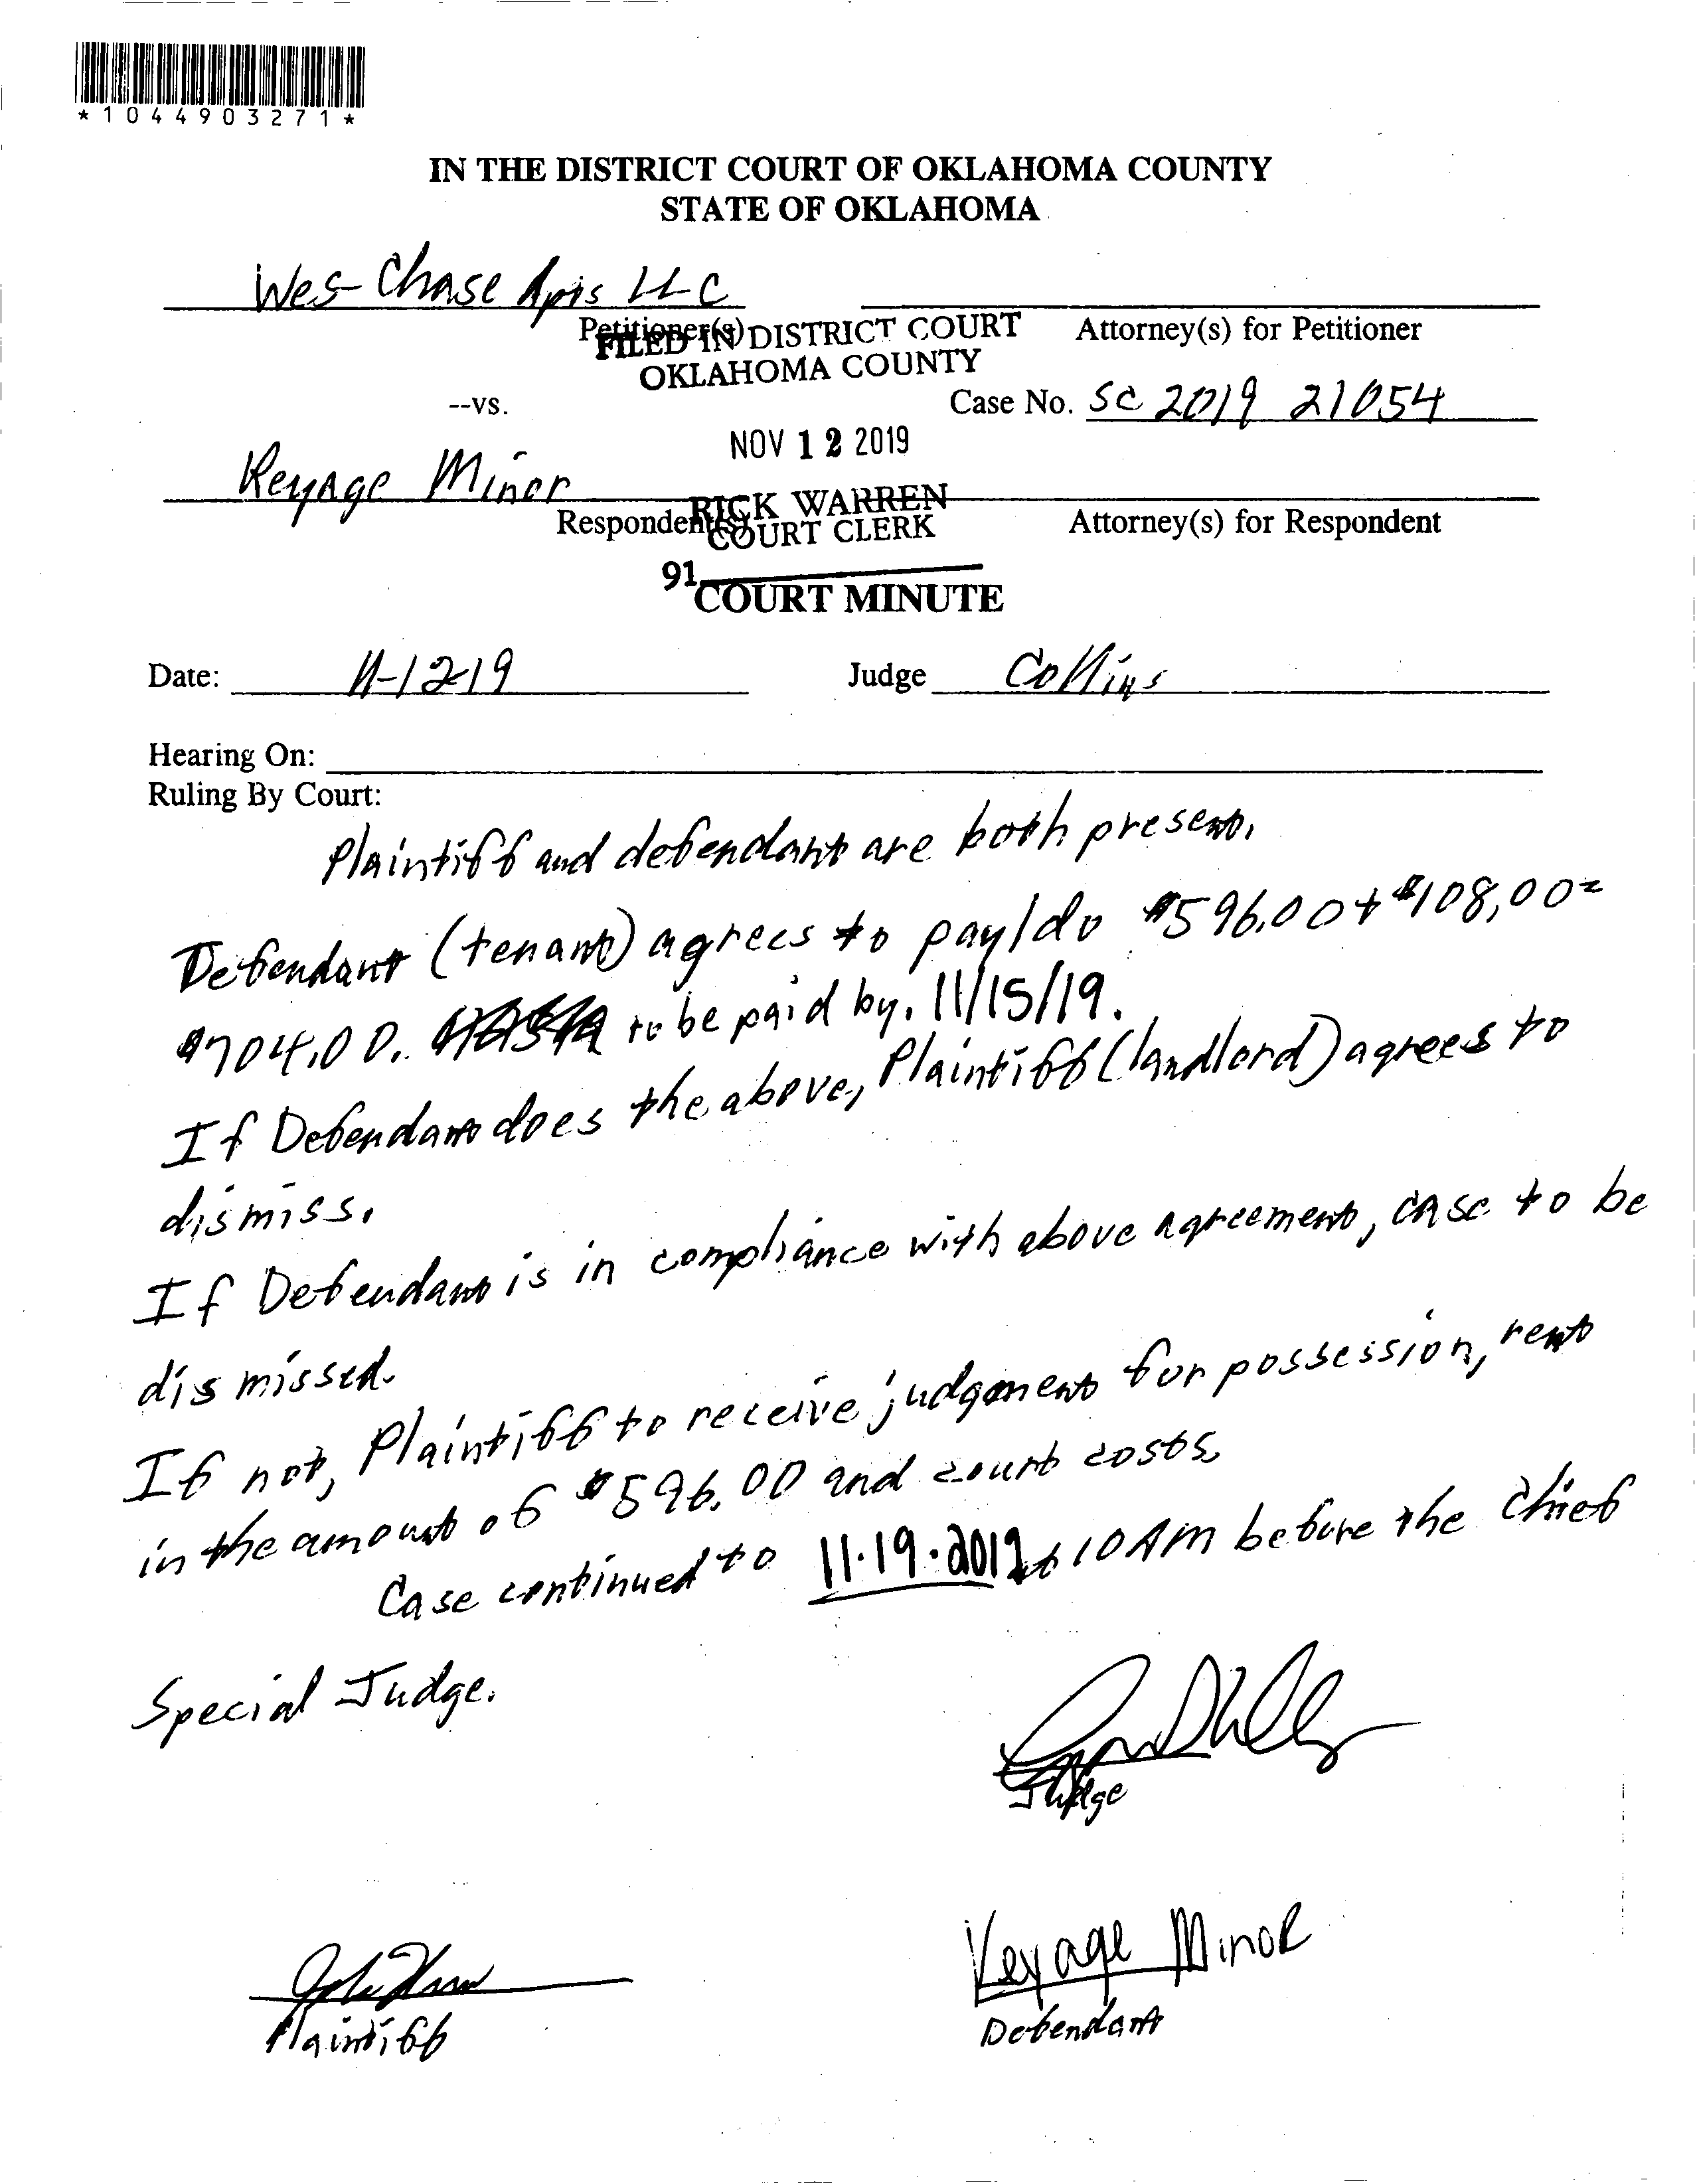 *1044903271*
IN THE DISTRICT COURT OF OKLAHOMA COUNTY
STATE OF OKLAHOMA
Wes-Chase Apts LLC
Petitioner(s)
Attorney(s) for Petitioner
FILED IN DISTRICT COURT
OKLAHOMA COUNTY
--vs.
Case No. SC 2019 21054
NOV 12 2019
Keyage Minor
Respondent(s)
Attorney(s) for Respondent
RICK WARREN
COURT CLERK
91
COURT MINUTE
Date: 11-12-19 Judge Collins
Hearing On:
Ruling By Court:
Plaintiff and defendant are both present.
Defendant (tenant) agrees to pay/do $596.00 + $108.00=
$704.00. to be paid by. 11/15/19.
If Defendant does the above, Plaintiff (landlord) agrees to
dismiss.
If Defendant is in compliance with above agreement, case to be
dismissed.
If not, Plaintiff to receive judgment for possession, rent
in the amount of $596.00 and court costs.
Case continued to 11.19.2019 at 10 AM before the Chief
Special Judge.
Judge
Keyage Minor
Plaintiff
Defendant